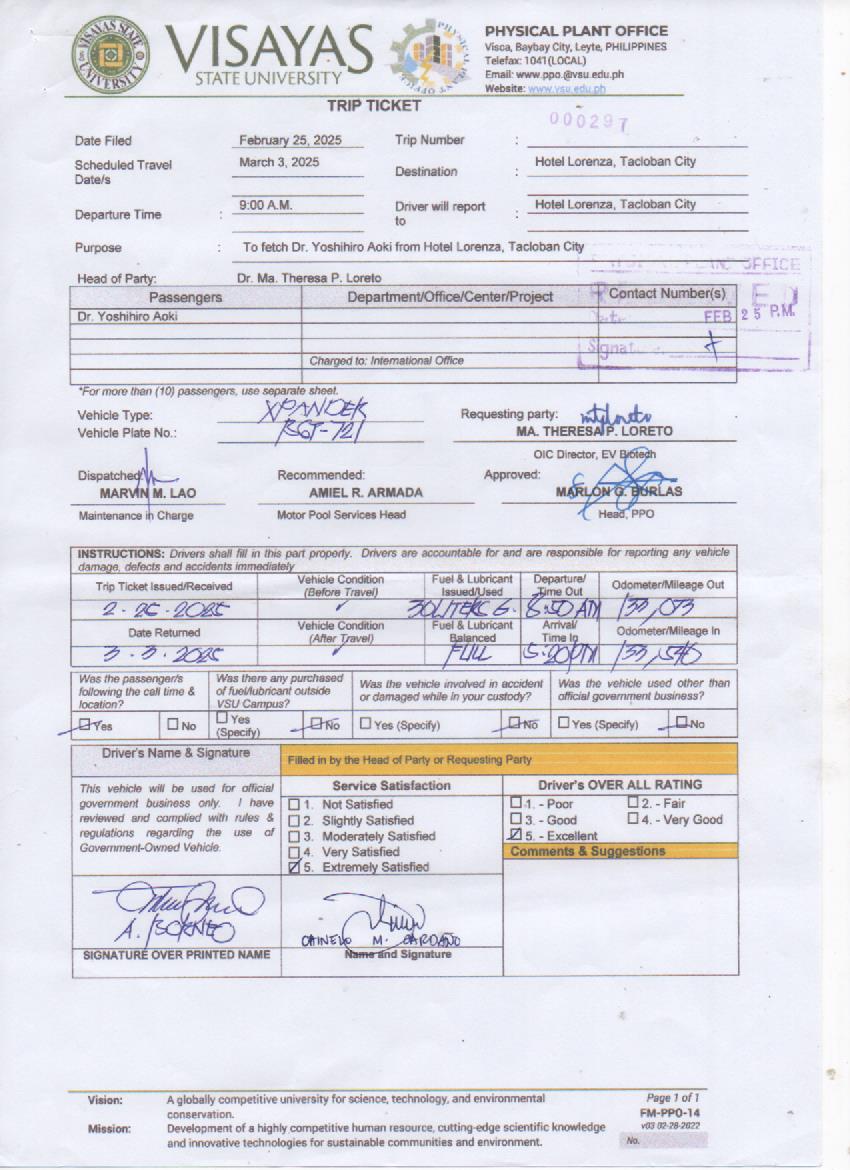 VISAYAS
STATE UNIVERSITY
PHYSICAL PLANT OFFICE
Visca, Baybay City, Leyte, PHILIPPINES
Telefax: 1041(LOCAL)
Email: www.ppo.@vsu.edu.ph
Website: www.vsu.edu.ph
TRIP TICKET
000297
Date Filed February 25, 2025 Trip Number :
Scheduled Travel Date/s March 3, 2025 Destination : Hotel Lorenza, Tacloban City
Departure Time : 9:00 A.M. Driver will report to : Hotel Lorenza, Tacloban City
Purpose : To fetch Dr. Yoshihiro Aoki from Hotel Lorenza, Tacloban City
Head of Party: Dr. Ma. Theresa P. Loreto
OFFICE
Passengers Department/Office/Center/Project Contact Number(s)
Dr. Yoshihiro Aoki
FEB 25 P.M.
Charged to: International Office
*For more than (10) passengers, use separate sheet.
Vehicle Type: XPANDER Requesting party:
Vehicle Plate No.: MA. THERESA P. LORETO
OIC Director, EV Biotech
Dispatched Recommended: Approved:
MARVIN M. LAO AMIEL R. ARMADA MARLON G. BURLAS
Maintenance in Charge Motor Pool Services Head Head, PPO
INSTRUCTIONS: Drivers shall fill in this part properly. Drivers are accountable for and are responsible for reporting any vehicle
damage, defects and accidents immediately
Trip Ticket Issued/Received Vehicle Condition (Before Travel) Fuel & Lubricant Issued/Used Departure/ Time Out Odometer/Mileage Out
2-25-2025 30LITERS G. 8:50 AM 133,073
Date Returned Vehicle Condition (After Travel) Fuel & Lubricant Balanced Arrival/ Time In Odometer/Mileage In
3-3-2025 FULL 5:20PM
Was the passenger/s following the call time & location? Was there any purchased of fuel/lubricant outside VSU Campus? Was the vehicle involved in accident or damaged while in your custody? Was the vehicle used other than official government business?
Yes No Yes (Specify) No Yes (Specify) No Yes (Specify) No
Driver's Name & Signature Filled in by the Head of Party or Requesting Party
This vehicle will be used for official
government business only. I have
reviewed and complied with rules &
regulations regarding the use of
Government-Owned Vehicle.
Service Satisfaction
1. Not Satisfied
2. Slightly Satisfied
3. Moderately Satisfied
4. Very Satisfied
5. Extremely Satisfied
Driver's OVER ALL RATING
1. - Poor 2. - Fair
3. - Good 4. - Very Good
5. - Excellent
Comments & Suggestions
A. BORNEO
SIGNATURE OVER PRINTED NAME
Name and Signature
Vision: A globally competitive university for science, technology, and environmental
conservation.
Mission: Development of a highly competitive human resource, cutting-edge scientific knowledge
and innovative technologies for sustainable communities and environment.
Page 1 of 1
FM-PPO-14
v03 02-28-2022
No.